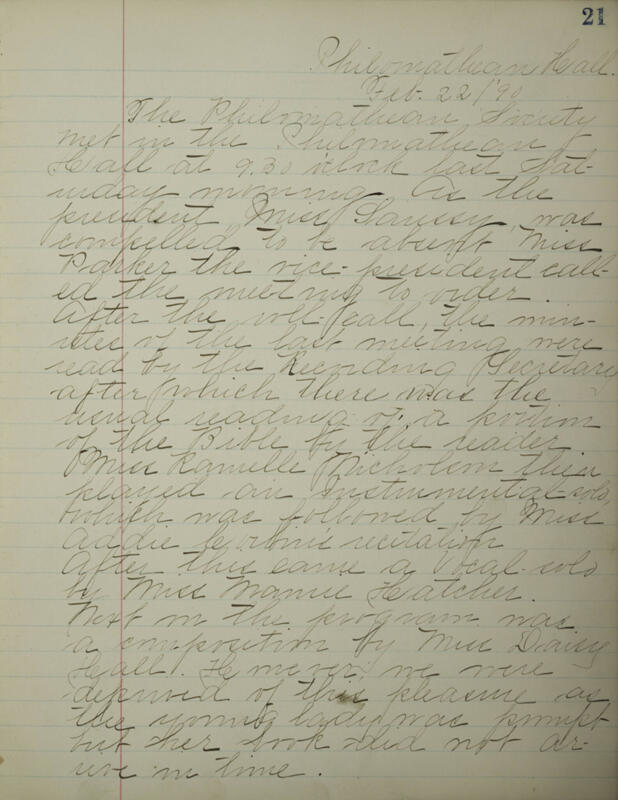 21
Philomathean Hall.
Feb. 22/90
The Philomathean Society
met in the Philomathean
Hall at 9.30 oclock last Sat-
urday morning. As the
president Miss was
compelled to be absent Miss
Parker the vice-president call-
ed the meeting to order.
After the roll call, the min-
utes of the last meeting were
read by the Recording Secretary
after which there was the
usual reading of a portion
of the Bible by the reader
Miss Nicholson then
played an Instrumental solo,
which was followed by Miss
Addie recitation
After this came a Vocal-solo
by Miss Mamie Hatcher.
Next in the program was
a composition by Miss Daisy
Hall. However, we were
deprived of this pleasure as
the young lady was prompt
but her book did not ar-
rive in time.